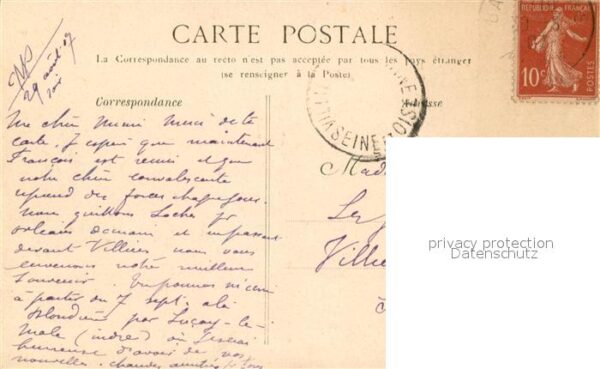 CARTE POSTALE
La Correspondance au recto n'est pas acceptée par tous les pays étranger
(se renseigner à la Poste)
Correspondance
Adresse
REPUBLIQUE FRANÇAISE
10c
POSTES
29 août 07
soir
Ma chère Mimi Merci de ta
carte. J'espère que maintenant
François est remis et que
notre chère convalescente
reprend des forces chaque jour.
Nous quittons Loches pr
Orléans demain et en passant
devant Villiers nous vous
enverrons notre meilleur
souvenir.
à partir du 7 sept. à la
par Luçay-le-
Male (Indre) où je serai
heureuse d'avoir de vos
nouvelles.
SEINE
OISE
Mad
Le
Villie
privacy protection
Datenschutz